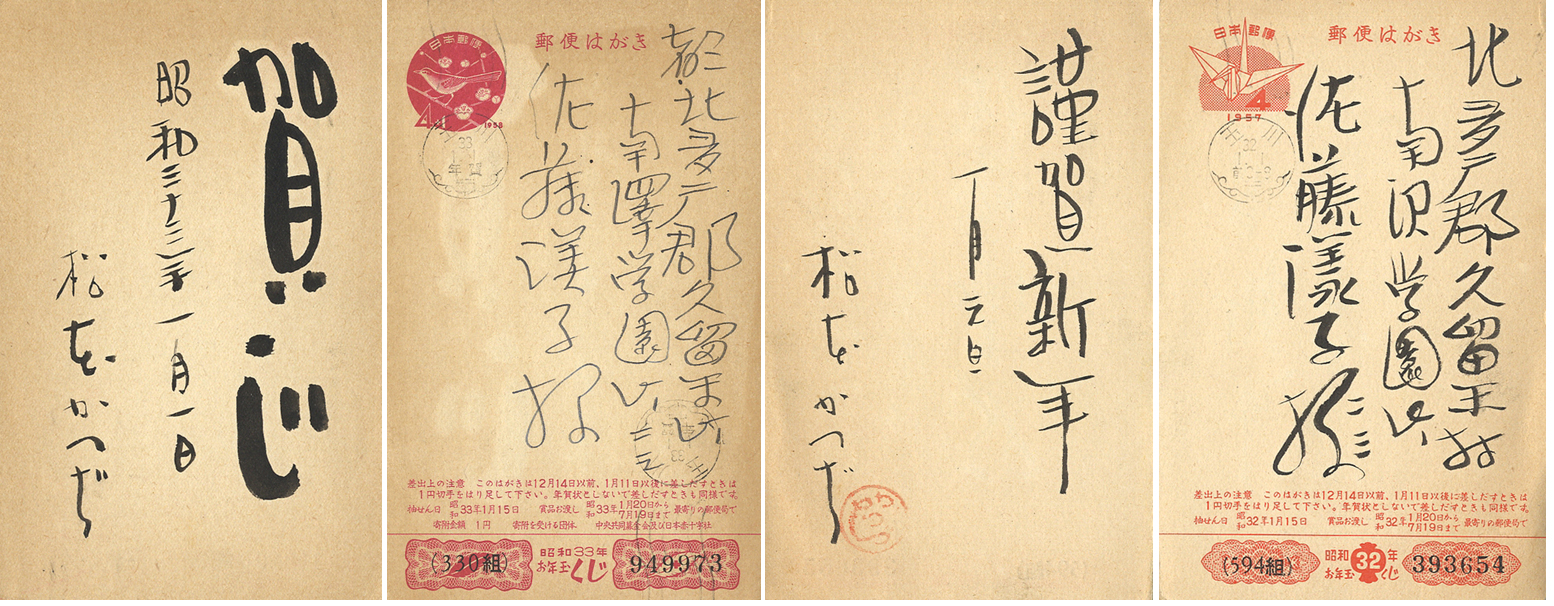 賀正
昭和三十三年一月一日
松本かつぢ
日本郵便
郵便はがき
4
1958
都下
北多摩郡久留米
南澤学園
佐藤漾子様
年賀
差出上の注意 このはがきは12月14日以前、1月11日以後に差しだすときは
1円切手をはり足して下さい。年賀状としないで差しだすときも同様です。
抽せん日 昭和33年1月15日 賞品お渡し 昭和33年1月20日から7月19日まで 最寄りの郵便局で
寄附金額 1円 寄附を受ける団体 中央共同募金会及び日本赤十字社
(330組)
昭和33年
お年玉くじ
949973
謹賀新年
一月元旦
松本かつぢ
日本郵便
郵便はがき
4
1957
玉川
北多摩郡久留米村
南沢学園
佐藤漾子様
差出上の注意 このはがきは12月14日以前、1月11日以後に差しだすときは
1円切手をはり足して下さい。年賀状としないで差しだすときも同様です。
抽せん日 昭和32年1月15日 賞品お渡し 昭和32年1月20日から7月19日まで 最寄りの郵便局で
(594組)
昭和32年
お年玉くじ
393654